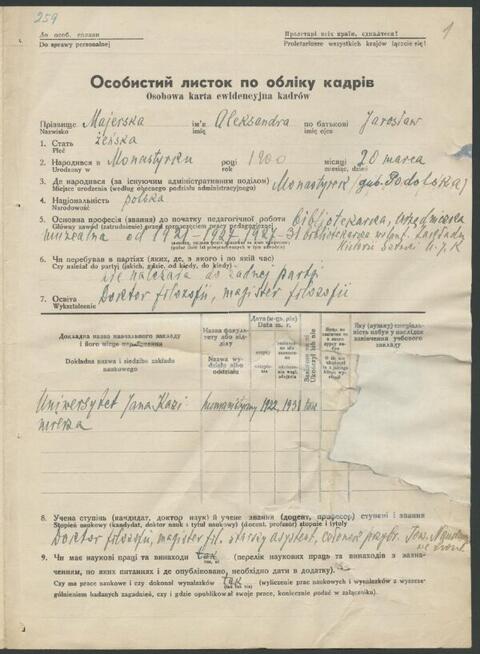 259
До особ. справи
Do sprawy personalnej
Пролетарі всіх країн, єднайтеся!
Proletariusze wszystkich krajów łączcie się!
1
Особистий листок по обліку кадрів
Osobowa karta ewidencyjna kadrów
Прізвище Majerska ім'я Aleksandra по батькові Jarosław
Nazwisko imię imię ojca
1. Стать żeńska
Płeć
2. Народився в Monastyrku році 1900 місяці, дні 20 marca
Urodzony w roku miesiąc, dzień
3. Де народився (за існуючим адміністративним поділом) Monastyrk (gub. Podolska)
Miejsce urodzenia (według obecnego podziału administracyjnego)
4. Національність polska
Narodowość
5. Основна професія (звання) до початку педагогічної роботи bibliotekarka,
Główny zawód (zatrudnienie) przed rozpoczęciem pracy pedagogicznej
muzealna od 1921-1927, 1927-31 bibliotekarka Zakładu
Historii Sztuki U.J.K
6. Чи перебував в партіях (яких, де, з якого і по який час)
Czy należał do partji (jakich, gdzie, od kiedy, do kiedy)
nie należała do żadnej partji
7. Освіта Doktor filozofii, magister filozofii
Wykształcenie
Докладна назва навчального закладу і його місце перебування
Dokładna nazwa i siedziba zakładu naukowego
Назва факультету або відділу
Nazwa wydziału albo oddziału
Дата (м-ць, рік)
Data m. r.
Яку (вузьку) спеціальність набув у наслідок закінчення учбового закладу
Uniwersytet Jana Kazimierza
humanistyczny 1922 193 tak
8. Учена ступінь (кандидат, доктор наук) й учене звання (доцент, професор) ступені і звання
Stopień naukowy (kandydat, doktor nauk i tytuł naukowy) (docent, profesor) stopnie i tytuły
Doktor filozofii, magister fil. starszy asystent, członek przybr. Tow. Naukow.
we Lwowie
9. Чи має наукові праці та винаходи tak (перелік наукових праць та винаходів з зазначенням, по яких питаннях і де опубліковано, необхідно дати в додатку).
Czy ma prace naukowe i czy dokonał wynalazków tak (wyliczenie prac naukowych i wynalazków z wyszczególnieniem badanych zagadnień, czy i gdzie opublikował swoje prace, koniecznie podać w załączniku).